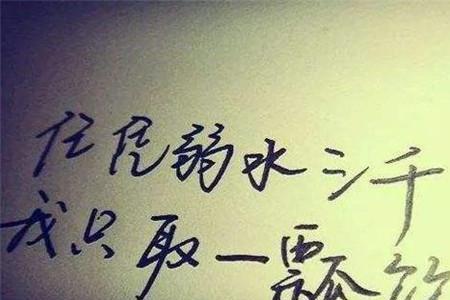 任凭弱水三千
我只取一瓢